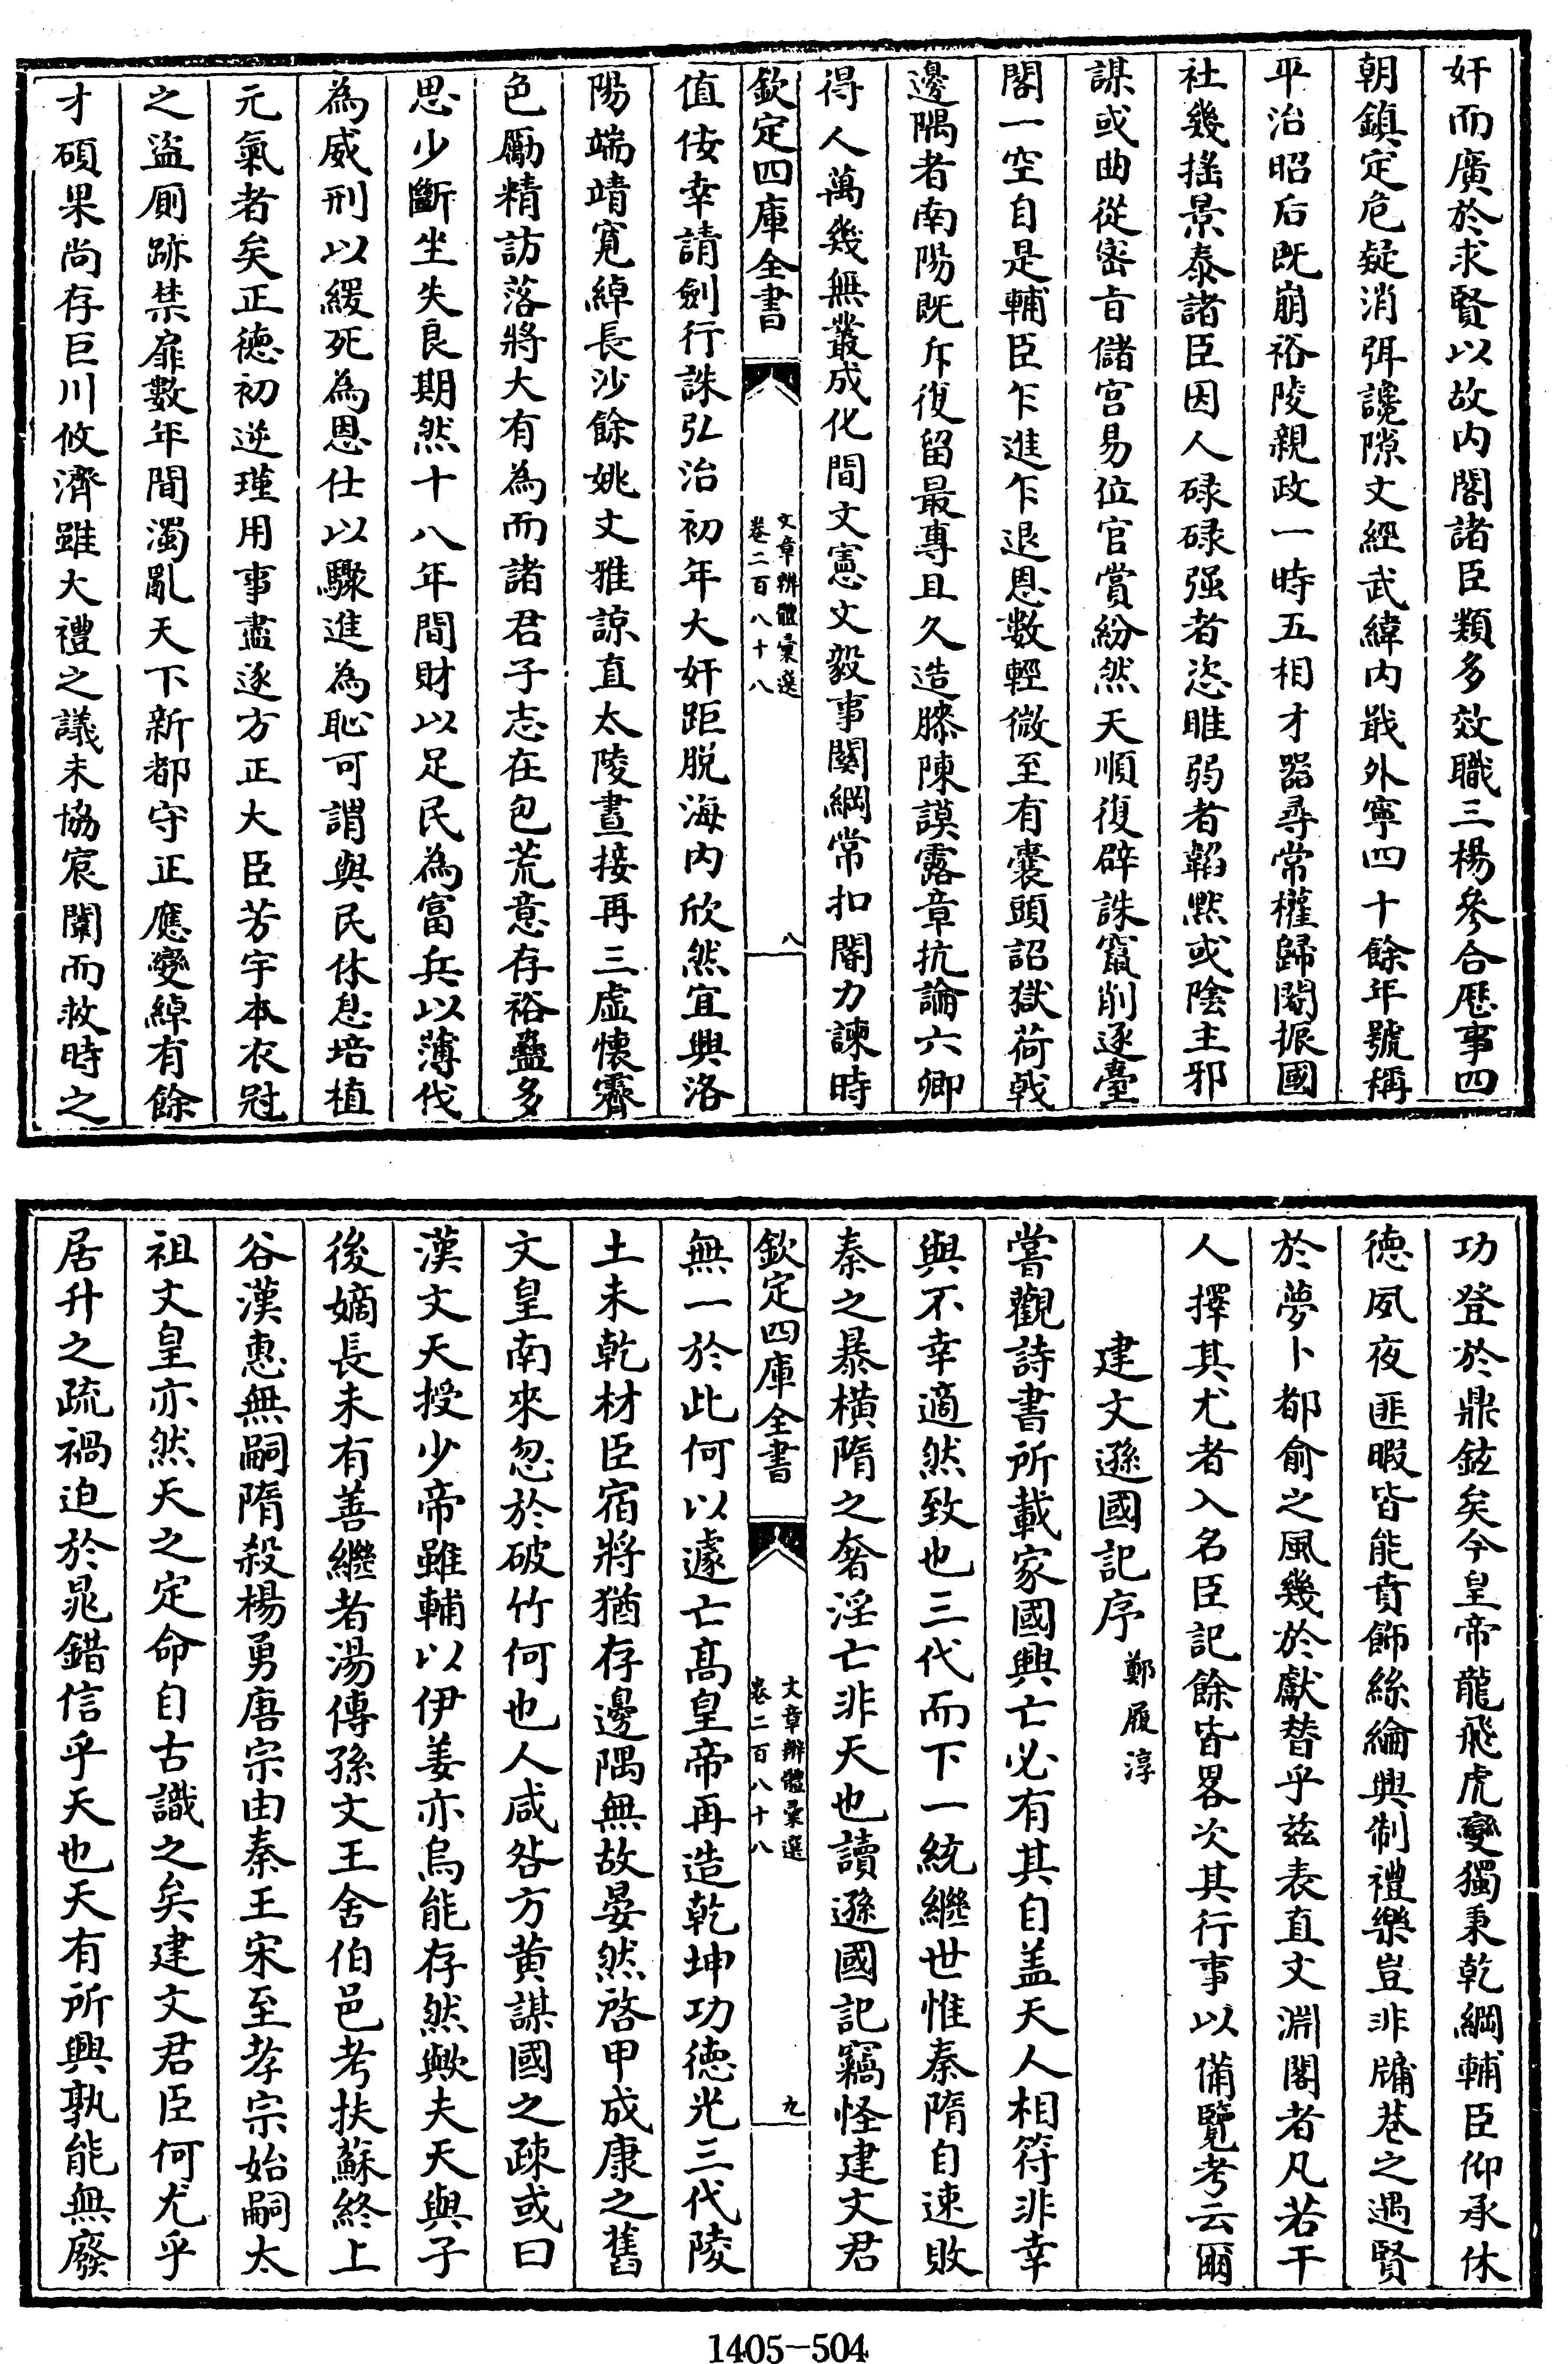 奸而廣於求賢以故内閣諸臣類多效職三楊參合厯事四
朝鎮定危疑消弭讒隙文經武緯内戢外寧四十餘年號稱
平治昭后既崩裕陵親政一時五相才器尋常權歸閹振國
社幾揺景泰諸臣因人碌碌强者恣睢弱者韜黙或陰主邪
謀或曲從宻旨儲宫易位官賞紛然天順復辟誅竄削逐臺
閣一空自是輔臣乍進乍退恩數輕微至有囊頭詔獄荷戟
邊隅者南陽既斥復留最專且久造膝陳謨露章抗論六卿
得人萬幾無叢成化間文憲文毅事關綱常扣閽力諫時
欽定四庫全書
文章辨體彙選
卷二百八十八
八
值佞幸請劍行誅弘治初年大奸距脱海内欣然宜興洛
陽端靖寛綽長沙餘姚文雅諒直太陵晝接再三虚懷霽
色勵精訪落將大有為而諸君子志在包荒意存裕蠱多
思少斷坐失良期然十八年間財以足民為富兵以薄伐
為威刑以緩死為恩仕以驟進為恥可謂與民休息培植
元氣者矣正徳初逆瑾用事盡逐方正大臣芳宇本衣冠
之盜厠跡禁扉數年間濁亂天下新都守正應變綽有餘
才碩果尚存巨川攸濟雖大禮之議未協宸闈而救時之
功登於鼎鉉矣今皇帝龍飛虎變獨秉乾綱輔臣仰承休
徳夙夜匪暇皆能賁飾絲綸興制禮樂豈非牗巷之遇賢
於夢卜都俞之風幾於獻替乎兹表直文淵閣者凡若干
人擇其尤者入名臣記餘皆畧次其行事以備覽考云爾
建文遜國記序 鄭履淳
嘗觀詩書所載家國興亡必有其自盖天人相符非幸
與不幸適然致也三代而下一統繼世惟秦隋自速敗
秦之暴橫隋之奢淫亡非天也讀遜國記竊怪建文君
欽定四庫全書
文章辨體彙選
卷二百八十八
九
無一於此何以遽亡髙皇帝再造乾坤功徳光三代陵
土未乾材臣宿將猶存邊隅無故晏然啓甲成康之舊
文皇南來忽於破竹何也人咸咎方黄謀國之疎或曰
漢文天授少帝雖輔以伊姜亦烏能存然歟夫天與子
後嫡長未有善繼者湯傳孫文王舍伯邑考扶蘇終上
谷漢惠無嗣隋殺楊勇唐宗由秦王宋至孝宗始嗣太
祖文皇亦然天之定命自古識之矣建文君臣何尤乎
居升之疏禍迫於晁錯信乎天也天有所興孰能無廢
1405-504